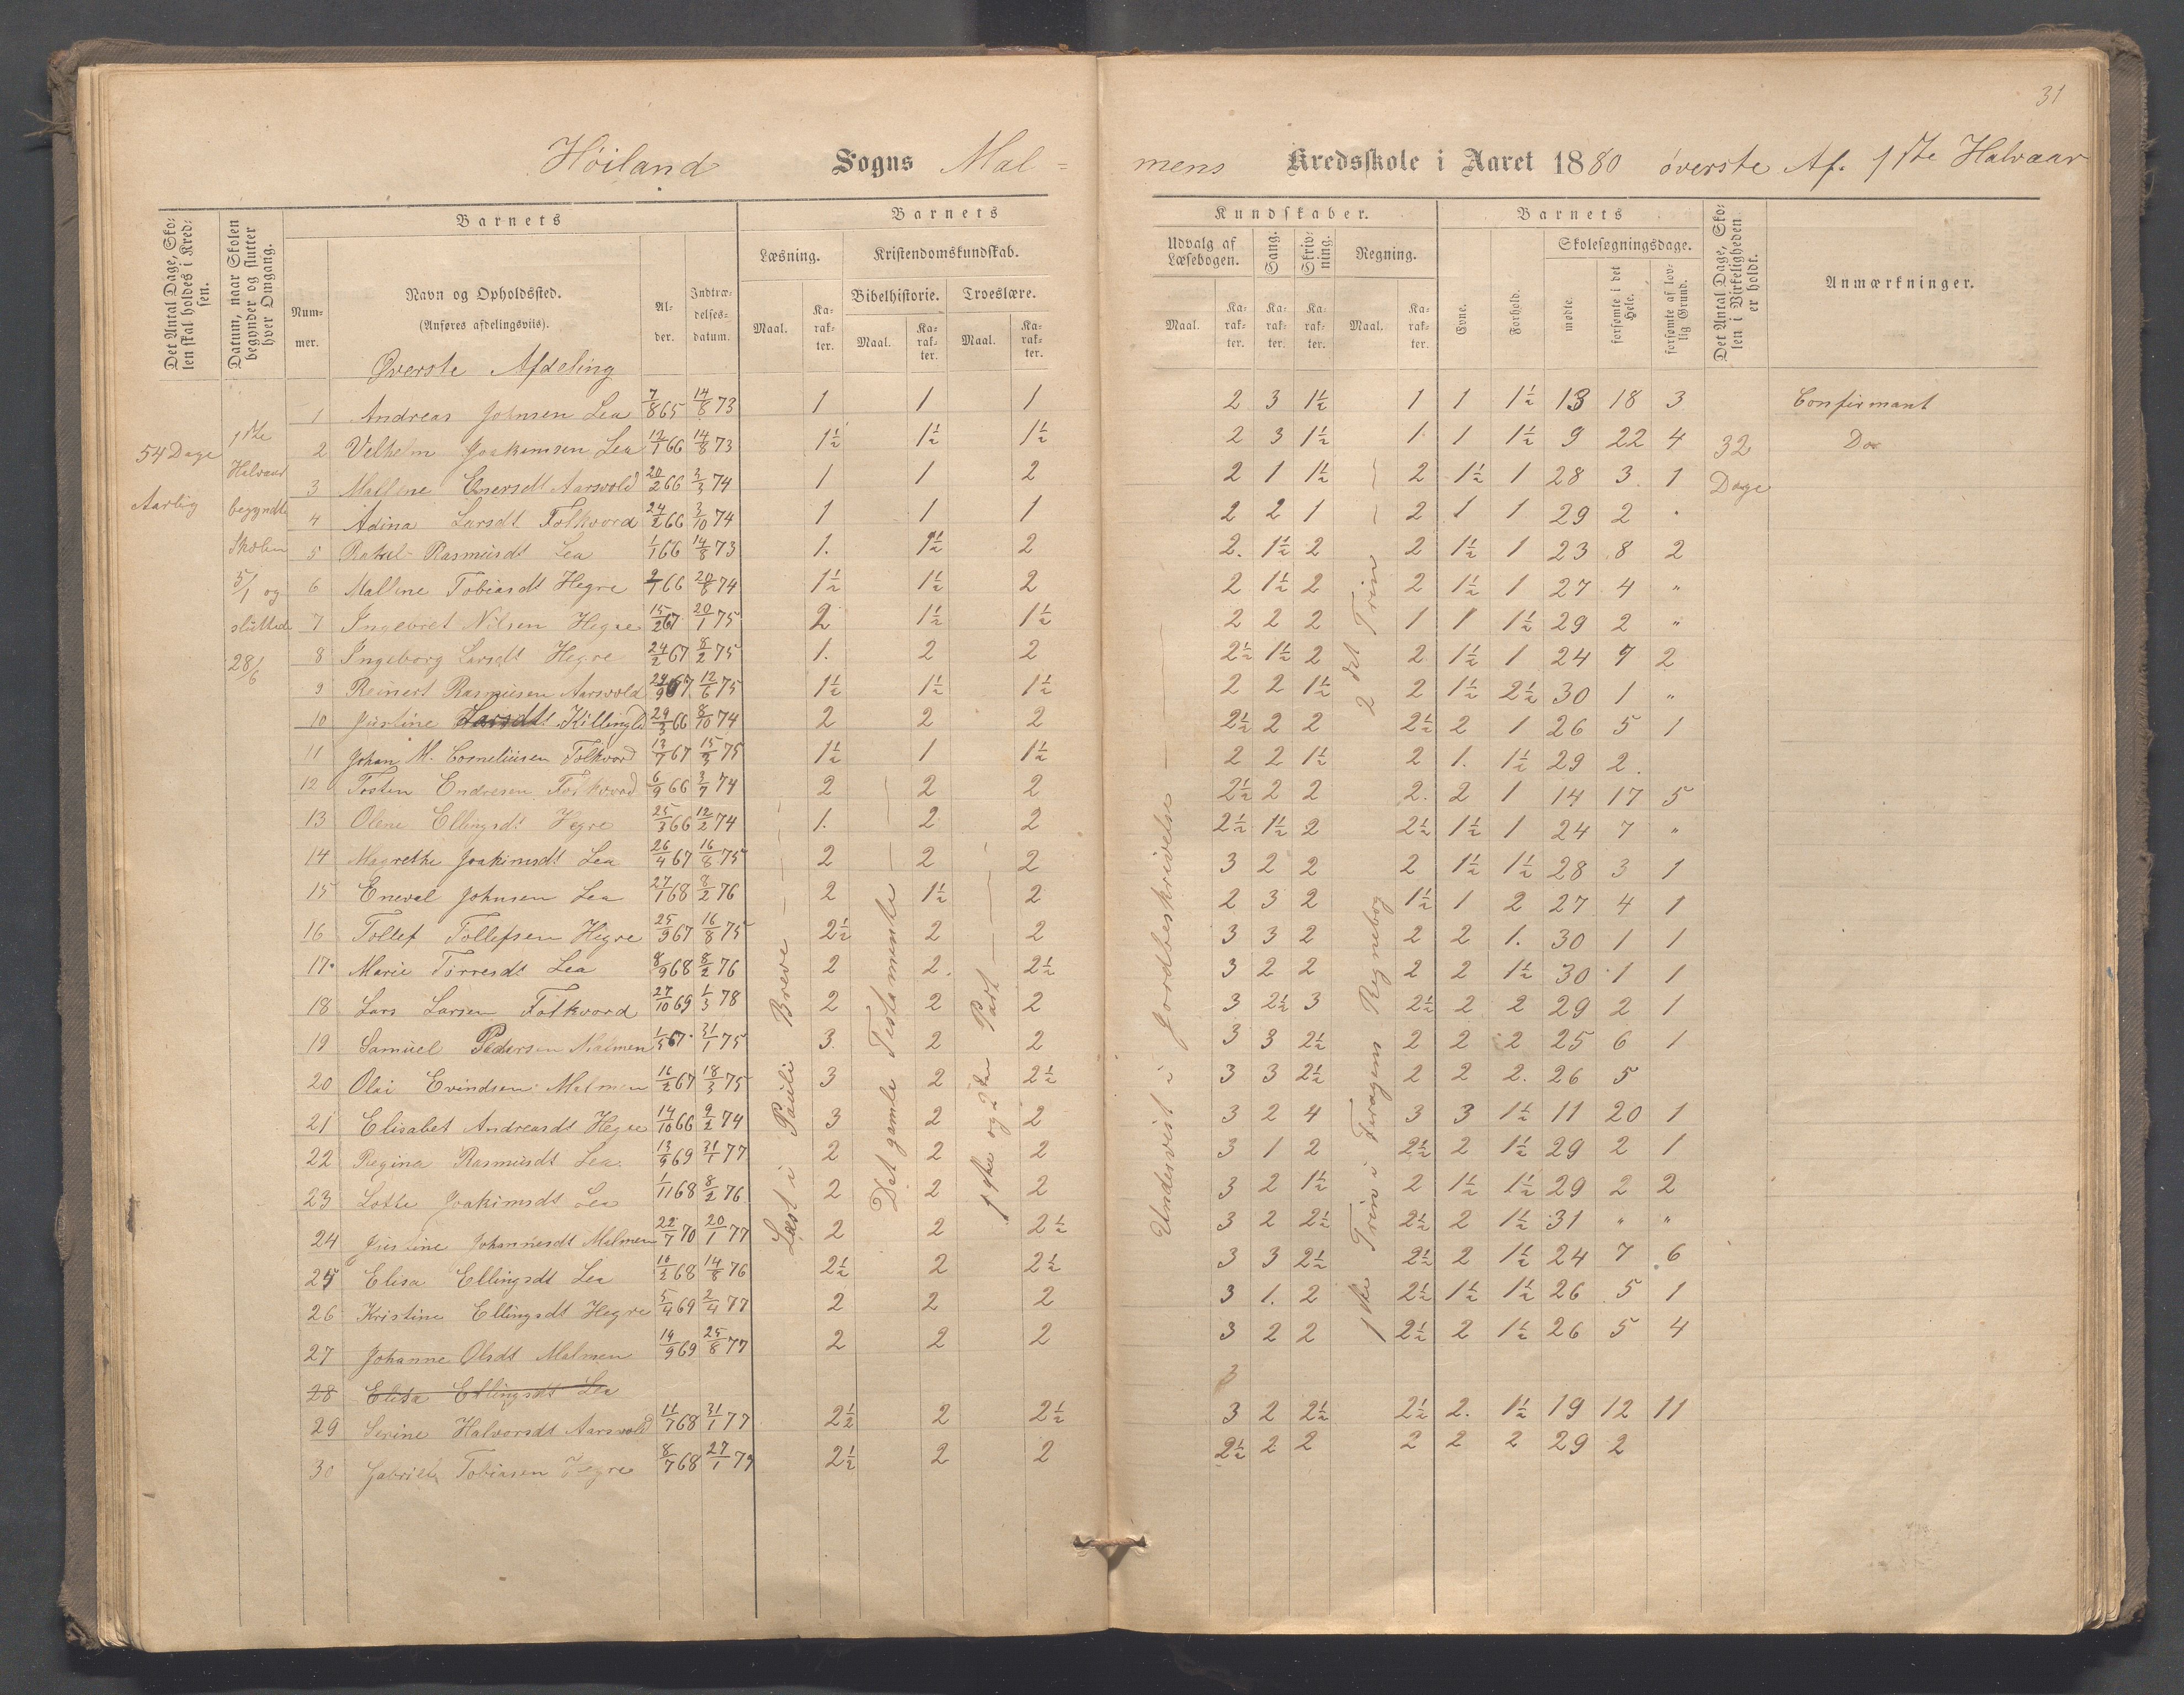 31
Höiland Sogns Mal= mens Kredsskole i Aaret 1880 överste Af. 1ste Halvaar
Det Antal Dage, Skolen skal holdes i Kredsen.
Datum, naar Skolen begynder og slutter hver Omgang.
Barnets
Nummer.
Navn og Opholdssted.
(Anføres afdelingsviis).
Alder.
Indtrædelsesdatum.
Barnets
Læsning.
Maal.
Karakter.
Kristendomskundskab.
Bibelhistorie.
Maal.
Karakter.
Troeslære.
Maal.
Karakter.
Kundskaber.
Udvalg af Læsebogen.
Maal.
Karakter.
Sang.
Karakter.
Skrivning.
Karakter.
Regning.
Maal.
Karakter.
Barnets
Evne.
Forhold.
Skolesøgningsdage.
mødte.
forsømte i det Hele.
forsømte af lovlig Grund.
Det Antal Dage, Skolen i Virkeligheden er holdt.
Anmærkninger.
Øverste Afdeling
54 Dage Aarlig
1ste Halvaar begyndte Skolen 5/1 og sluttede 28/6
32 Dage
Læst i Pauli Breve
Det gamle Testamente
1ste og 2den Part
Undervist i Jordbeskrivelse
1ste Trin i Faragers Regnebog
2det Trin
1 Andreas Johnsen Lea 7/8 65 14/8 73 1 1 1 2 3 1½ 1 1 1½ 13 18 3 Confirmant
2 Velhelm Joakimsen Lea 12/1 66 14/8 73 1½ 1½ 1½ 2 3 1½ 1 1 1½ 9 22 4 Do
3 Mallene Enersdt Aarsvold 20/2 66 3/3 74 1 1 2 2 1 1½ 2 1½ 1 28 3 1
4 Adina Larsdt Folkvord 24/2 66 3/10 74 1 1 1 2 2 1 2 1 1 29 2
5 Rakel Rasmusdt Lea 1/1 66 14/8 73 1. 1½ 2 2. 1½ 2 2 1½ 1 23 8 2
6 Mallene Tobiasdt Hegre 9/1 66 20/8 74 1½ 1½ 2 2 1½ 2 2 1½ 1 27 4 "
7 Ingebret Nilsen Hegre 15/2 67 20/1 75 2 1½ 1½ 2 2 2 1 1 1½ 29 2 "
8 Ingeborg Larsdt Hegre 24/2 67 8/2 75 1. 2 2 2½ 1½ 2 2 1½ 1 24 7 2
9 Reinert Rasmusen Aarsvold 24/9 67 12/6 75 1½ 1½ 1½ 2 2 1½ 2 1½ 2½ 30 1 "
10 Justine Larsdt Killingld 29/3 66 8/10 74 2 2 2 2½ 2 2 2½ 2 1 26 5 1
11 Johan M. Corneliusen Folkvord 13/7 67 15/3 75 1½ 1 1½ 2 2 1½ 2 1. 1½ 29 2.
12 Tosten Endresen Folkvord 6/9 66 3/7 74 2 2 2 2½ 2 2 2. 2 1 14 17 5
13 Olene Ellingsdt Hegre 25/3 66 12/2 74 1. 2 2 2½ 1½ 2 2½ 1½ 1 24 7 "
14 Magrethe Joakimsdt Lea 26/4 67 16/8 75 2 2 2 3 2 2 2 1½ 1½ 28 3 1
15 Eneval Johnsen Lea 27/1 68 8/2 76 2 1½ 2 2 3 2 1½ 1 2 27 4 1
16 Tollef Tollefsen Hegre 25/9 67 16/8 75 2½ 2 2 3 3 2 2 2 1. 30 1 1
17. Marie Torresdt Lea 8/9 68 8/2 76 2 2. 2½ 3 2 2 2 2 1½ 30 1 1
18 Lars Larsen Folkvord 27/10 69 1/3 78 2 2 2 3 2½ 3 2½ 2 2 29 2 1
19 Samuel Pedersen Malmen 1/5 67 31/1 75 3. 2 2 3 3 2½ 2 2 2 25 6 1
20 Olai Evindsen Malmen 16/2 67 18/3 75 3 2 2½ 3 3 2½ 2 2 2. 26 5
21 Elisabet Andreasdt Hegre 14/10 66 9/2 74 3 2 2 3 2 4 3 3 1½ 11 20 1
22 Regina Rasmusdt Lea. 13/9 69 31/1 77 2 2 2 3 1 2 2½ 2 1½ 29 2 1
23 Lotte Joakimsdt Lea 1/11 68 8/2 76 2 2 2 3 2 1½ 2 1½ 1½ 29 2 2
24 Justine Johannesdt Malmen 22/7 70 20/1 77 2 2 2½ 3 2 2½ 2½ 2 1½ 31 " "
25 Elisa Ellingsdt Lea 10/2 68 14/8 76 2½ 2 2½ 3 3 2½ 2½ 2 1½ 24 7 6
26 Kristine Ellingsdt Hegre 5/4 69 2/4 77 2 2 2 3 1. 2 2½ 1½ 1½ 26 5 1
27 Johanne Olsdt Malmen 19/9 69 25/8 77 2 2 2 3 2 2 2½ 2 1½ 26 5 4
28 Elisa Ellingsdt Lea 3
29 Serine Halvorsdt Aarsvold 11/7 68 31/1 77 2½ 2 2½ 3 2 2½ 2½ 2. 1½ 19 12 11
30 Gabriel Tobiasen Hegre 8/7 68 27/1 79 2½ 2 2 2½ 2 2 2 2 2 29 2